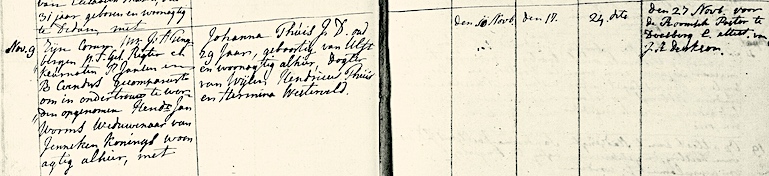 31 jaar geboren en woonagtig
te Didam met
Nov. 9
Zijn Comp. voor J. H.
bergen p. t. Gel. Rigter en
keurnoten P. Janten en
B. Coenders gecompareert
om in ondertrouw te wor-
den opgenomen Hendk Jan
Worms Weduwenaar van
Jenneken Konings woon
agtig alhier, met
Johanna Thuis J. D. oud
29 Jaar, geboortig van Ulft
en woonagtig alhier, Dogter
van Wijlen Hendricus Thuis
en Hermina Westerveld.
den 10 Novb.
den 17.
24 dito
den 27 Novb. voor
de Roomsch Pastor te
Doesborg C. attest. van
J. A.